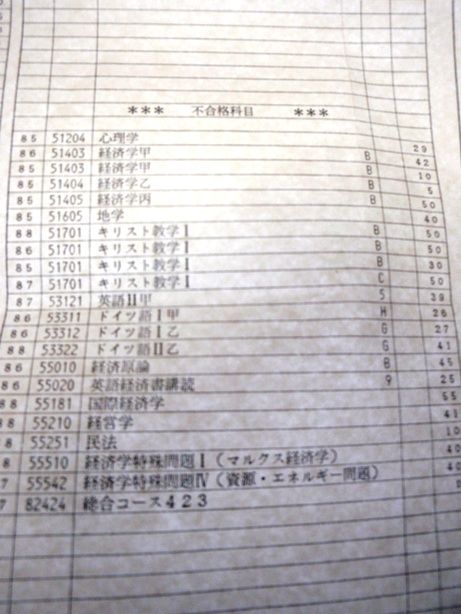 *** 不合格科目 ***
85 51204 心理学 29
86 51403 経済学甲 B 42
85 51403 経済学甲 B 10
85 51404 経済学乙 B 5
85 51405 経済学丙 B 50
85 51605 地学 40
88 51701 キリスト教学Ⅰ B 50
86 51701 キリスト教学Ⅰ B 50
85 51701 キリスト教学Ⅰ B 30
87 51701 キリスト教学Ⅰ C 50
87 53121 英語Ⅱ甲 S 39
86 53311 ドイツ語Ⅰ甲 H 26
86 53312 ドイツ語Ⅰ乙 G 27
88 53322 ドイツ語Ⅱ乙 G 41
86 55010 経済原論 B 45
86 55020 英語経済書講読 9 25
88 55181 国際経済学 55
88 55210 経営学 41
8 55251 民法 10
8 55510 経済学特殊問題Ⅰ(マルクス経済学) 40
7 55542 経済学特殊問題Ⅳ(資源・エネルギー問題) 40
7 82424 総合コース423